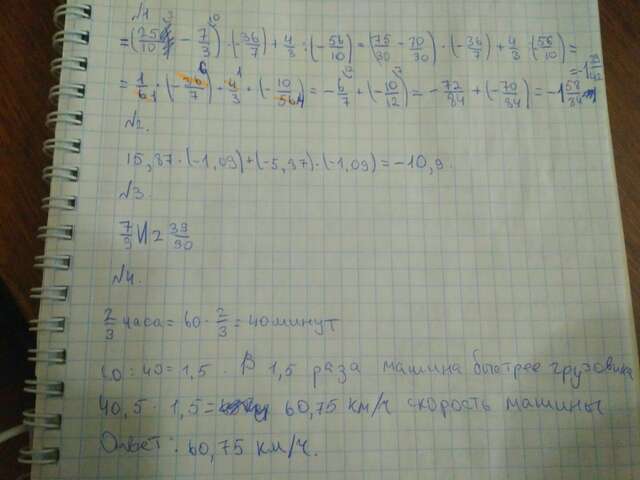 №1
= (25/10 - 7/3) · (-36/7) + 4/3 : (-56/10) = (75/30 - 70/30) · (-36/7) + 4/3 : (56/10) =
= 1/6 · (-36/7) + 4/3 · (-10/56) = -6/7 + (-10/42) = -72/84 + (-70/84) = -1 58/84 = -1 29/42
№2.
15,87 · (-1,09) + (-5,87) · (-1,09) = -10,9.
№3
7/3 и 2 39/90
№4.
2/3 часа = 60 · 2/3 = 40 минут
60 : 40 = 1,5 . В 1,5 раза машина быстрее грузовика
40,5 · 1,5 = 60,75 км/ч скорость машины
Ответ : 60,75 км/ч.